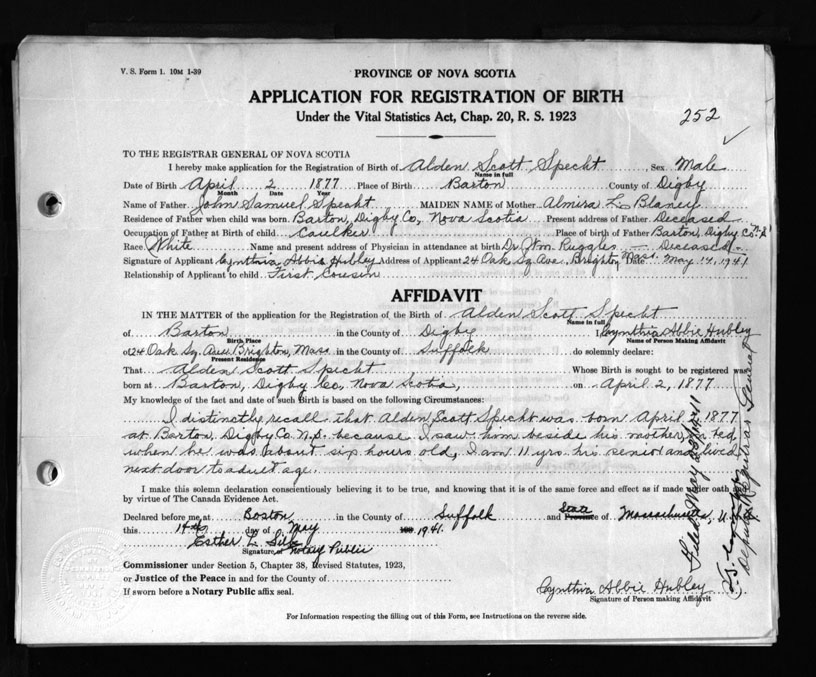 V. S. Form 1. 10M 1-39
PROVINCE OF NOVA SCOTIA
APPLICATION FOR REGISTRATION OF BIRTH
Under the Vital Statistics Act, Chap. 20, R. S. 1923
252
TO THE REGISTRAR GENERAL OF NOVA SCOTIA
I hereby make application for the Registration of Birth of Alden Scott Specht Sex Male
Name in full
Date of Birth April 2 1877 Place of Birth Barton County of Digby
Month Date Year
Name of Father John Samuel Specht MAIDEN NAME of Mother Almira L. Blaney
Residence of Father when child was born Barton, Digby Co, Nova Scotia Present address of Father Deceased
Occupation of Father at Birth of child Caulker Place of birth of Father Barton, Digby Co N.S.
Race White Name and present address of Physician in attendance at birth Dr. Wm. Ruggles – Deceased
Signature of Applicant Cynthia Abbie Hubley Address of Applicant 24 Oak Sq Ave, Brighton Mass. Date May 14, 1941
Relationship of Applicant to child First Cousin
AFFIDAVIT
IN THE MATTER of the application for the Registration of the Birth of Alden Scott Specht
Name in full
of Barton in the County of Digby I, Cynthia Abbie Hubley
Birth Place Name of Person Making Affidavit
of 24 Oak Sq. Ave. Brighton, Mass in the County of Suffolk do solemnly declare:
Present Residence
That Alden Scott Specht Whose Birth is sought to be registered was
born at Barton, Digby Co, Nova Scotia, on April 2, 1877
My knowledge of the fact and date of such Birth is based on the following Circumstances:
I distinctly recall that Alden Scott Specht was born April 2 1877
at Barton, Digby Co. N.S. because I saw him beside his mother, in bed
when he was about six hours old, I am 11 yrs. his senior and lived
next door to adult age.
I make this solemn declaration conscientiously believing it to be true, and knowing that it is of the same force and effect as if made under oath
by virtue of The Canada Evidence Act.
Declared before me at Boston in the County of Suffolk and State Province of Massachusetts, U.
this 14th day of May 1941.
Esther L.
Signature of Notary Public
Commissioner under Section 5, Chapter 38, Revised Statutes, 1923,
or Justice of the Peace in and for the County of
If sworn before a Notary Public affix seal.
Cynthia Abbie Hubley
Signature of Person making Affidavit
For Information respecting the filling out of this Form, see Instructions on the reverse side.
Filed May
Deputy Registrar General